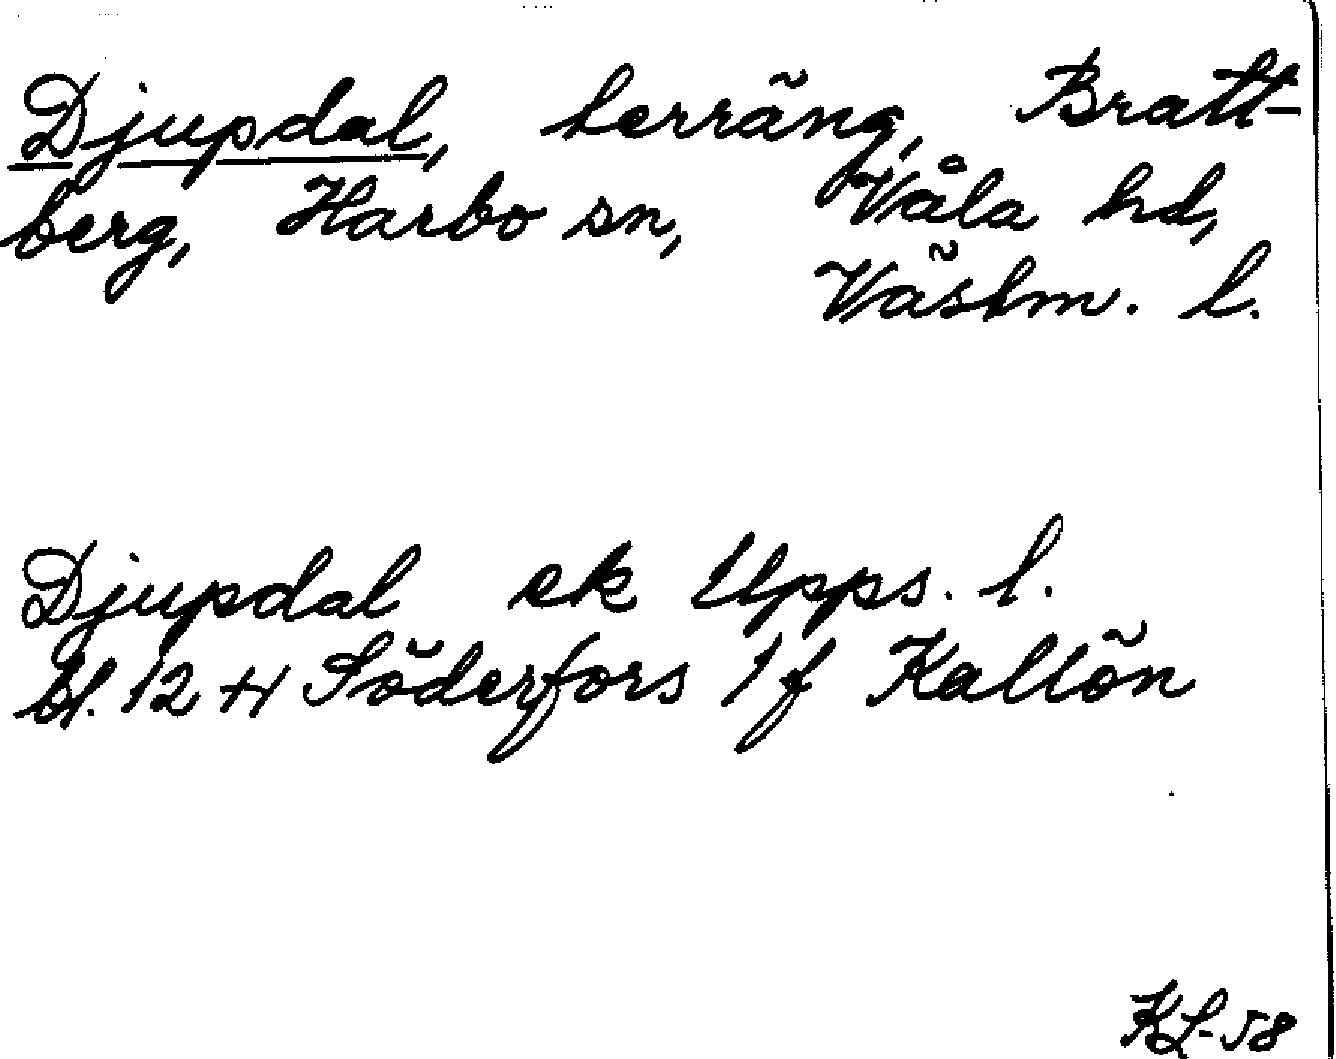 Djupdal, terräng, Bratt-
berg, Harbo sn, Våla hd,
Västm. l.
Djupdal ek Upps. l.
bl. 12 H Söderfors 1 f Kallön
KL-58